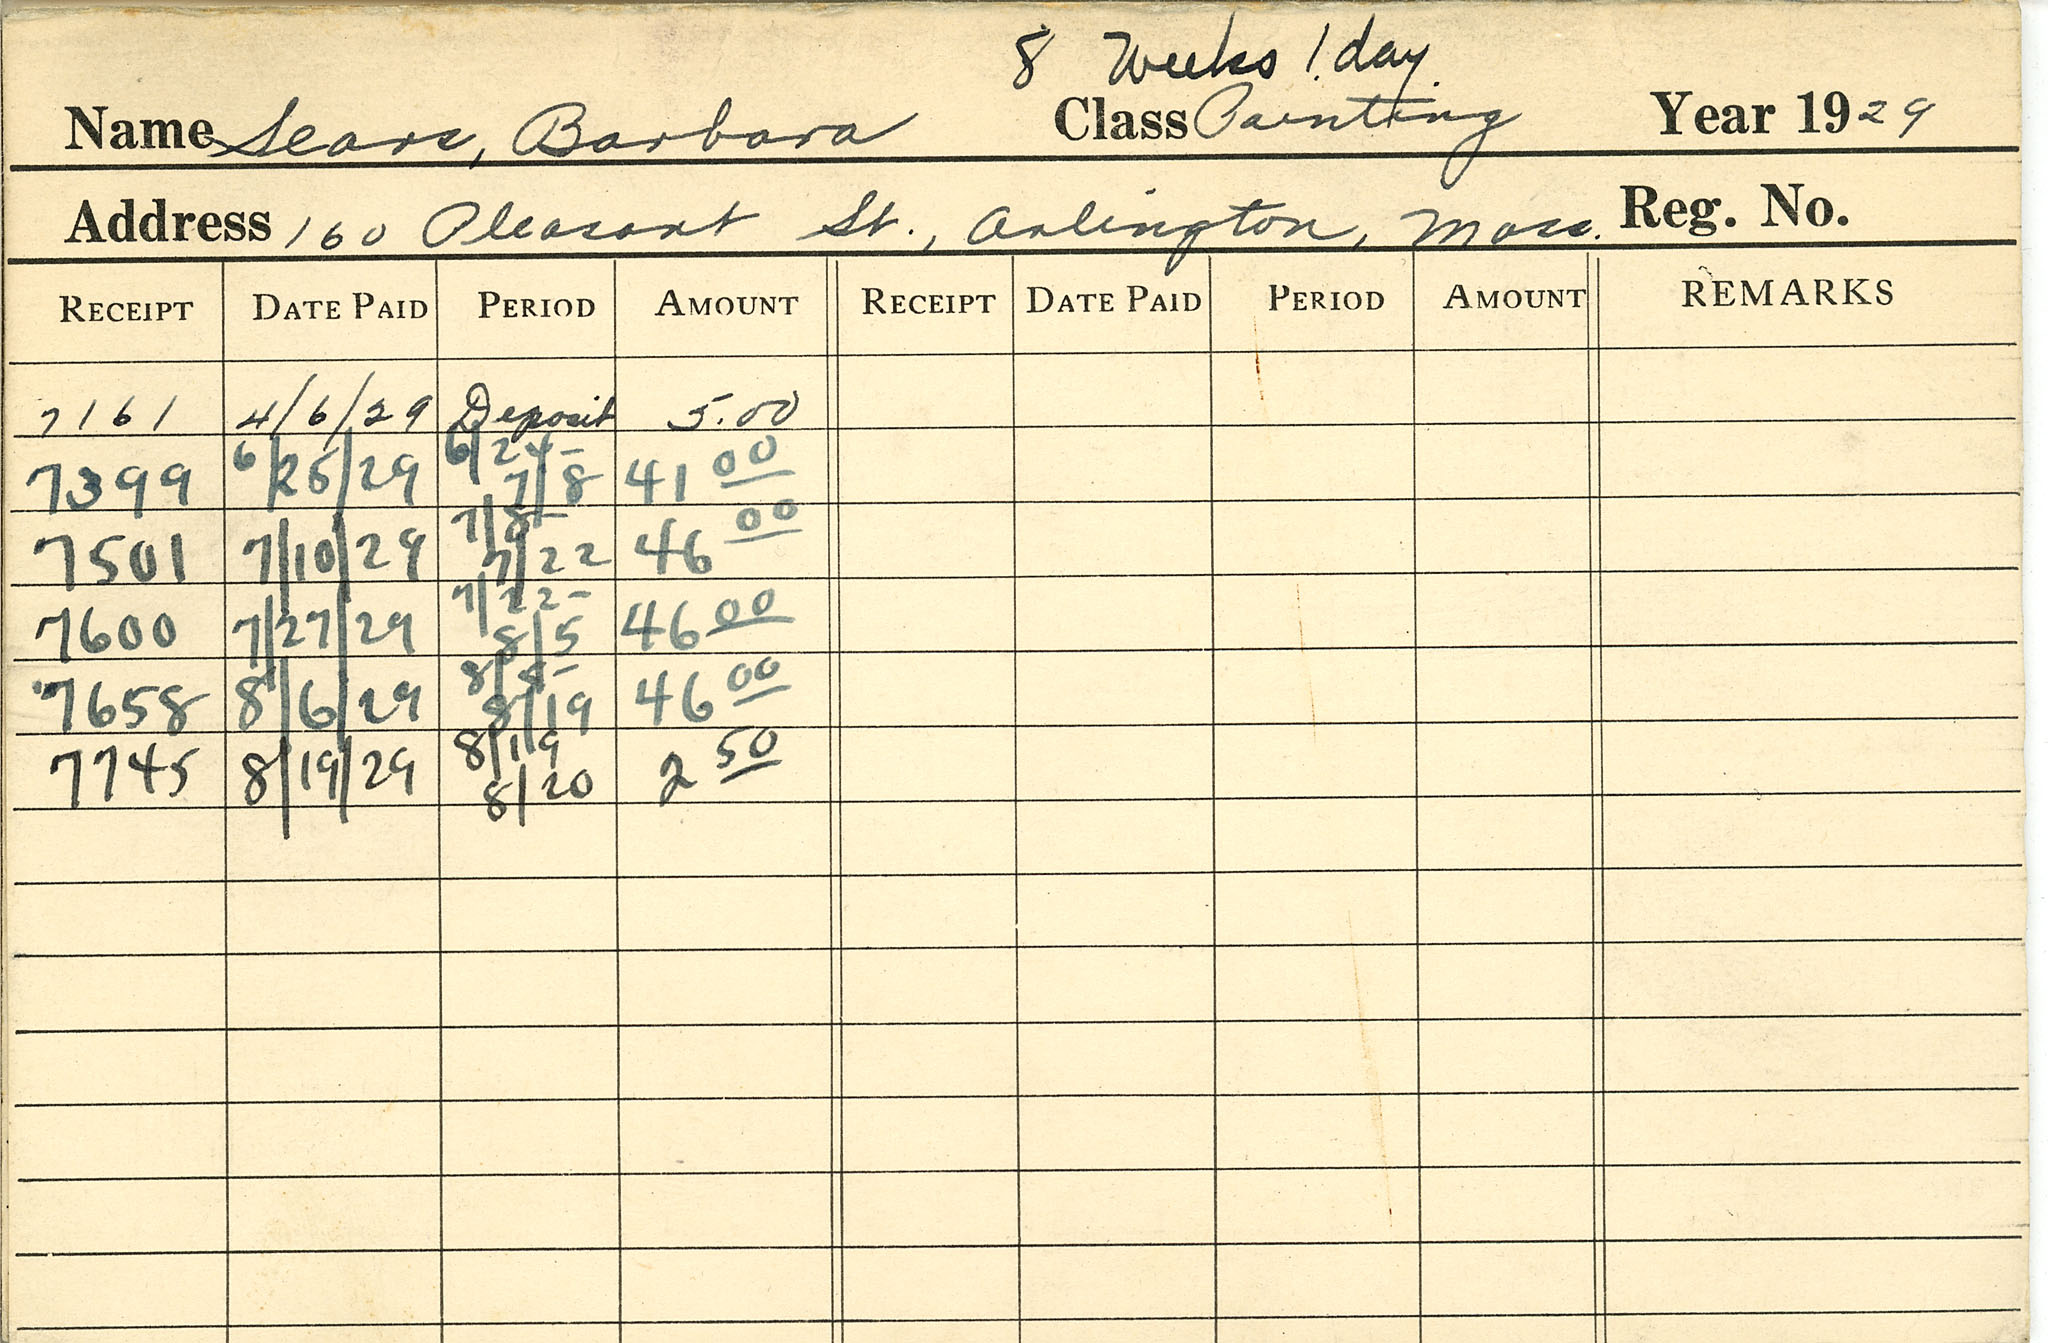 8 Weeks 1 day
Name Sears, Barbara Class Painting Year 1929
Address 160 Pleasant St., Arlington, Mass. Reg. No.
RECEIPT DATE PAID PERIOD AMOUNT RECEIPT DATE PAID PERIOD AMOUNT REMARKS
7161 4/6/29 Deposit 5.00
7399 6/25/29 6/24- 7/8 41 00
7501 7/10/29 7/8- 7/22 46 00
7600 7/27/29 7/22- 8/5 46 00
7658 8/6/29 8/5- 8/19 46 00
7745 8/19/29 8/19 8/20 2 50